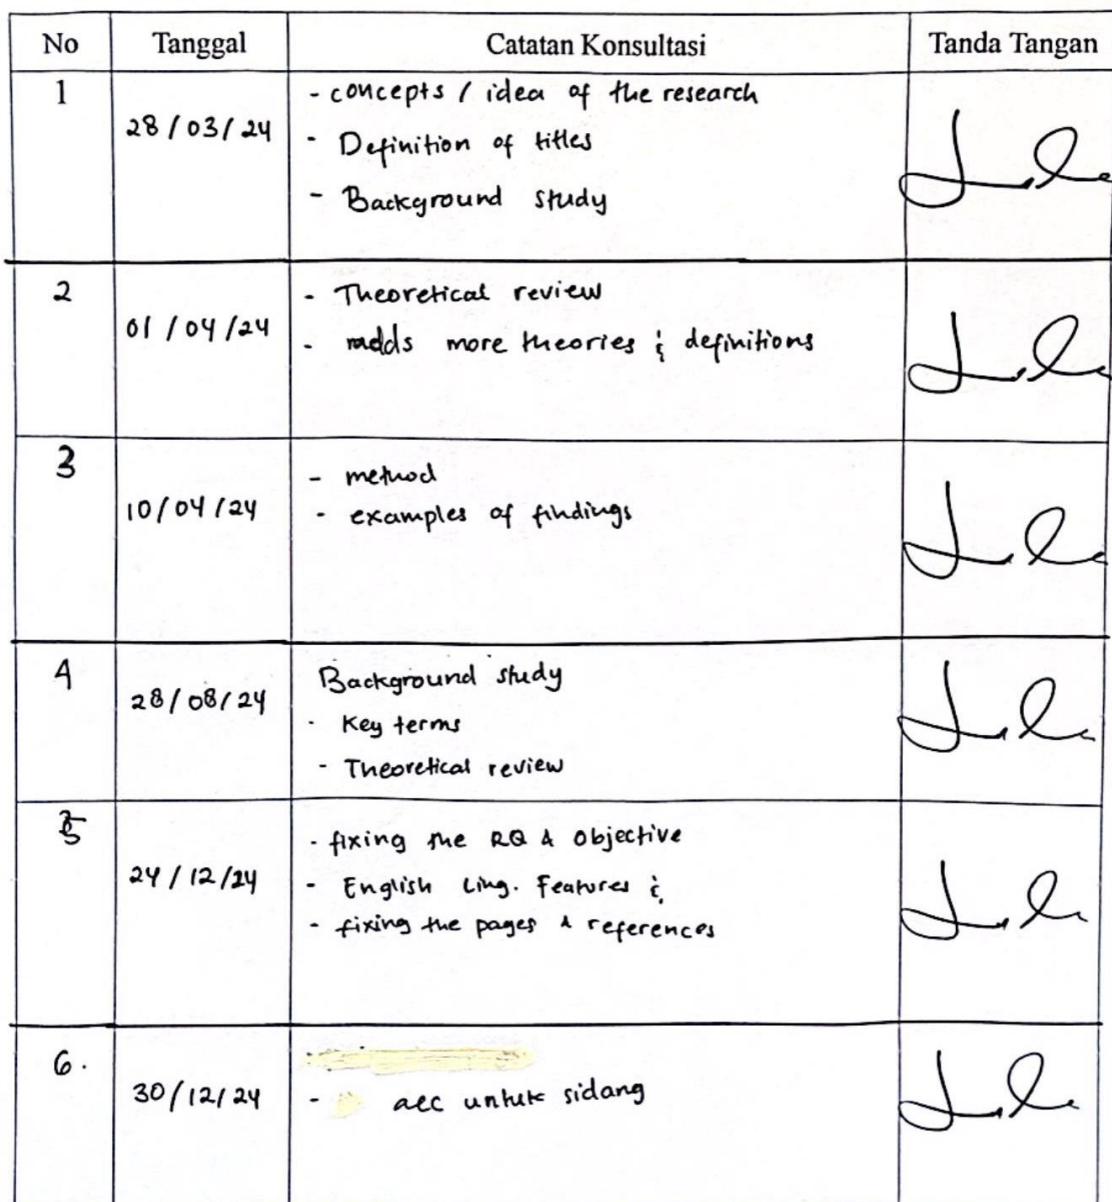 No Tanggal Catatan Konsultasi Tanda Tangan
1
28/03/24
- concepts / idea of the research
- Definition of titles
- Background study
2
01/04/24
- Theoretical review
- adds more theories & definitions
3
10/04/24
- method
- examples of findings
4
28/08/24
Background study
- Key terms
- Theoretical review
5
24/12/24
- fixing the RQ & Objective
- English Ling. Features &
- fixing the pages & references
6.
30/12/24
- acc untuk sidang